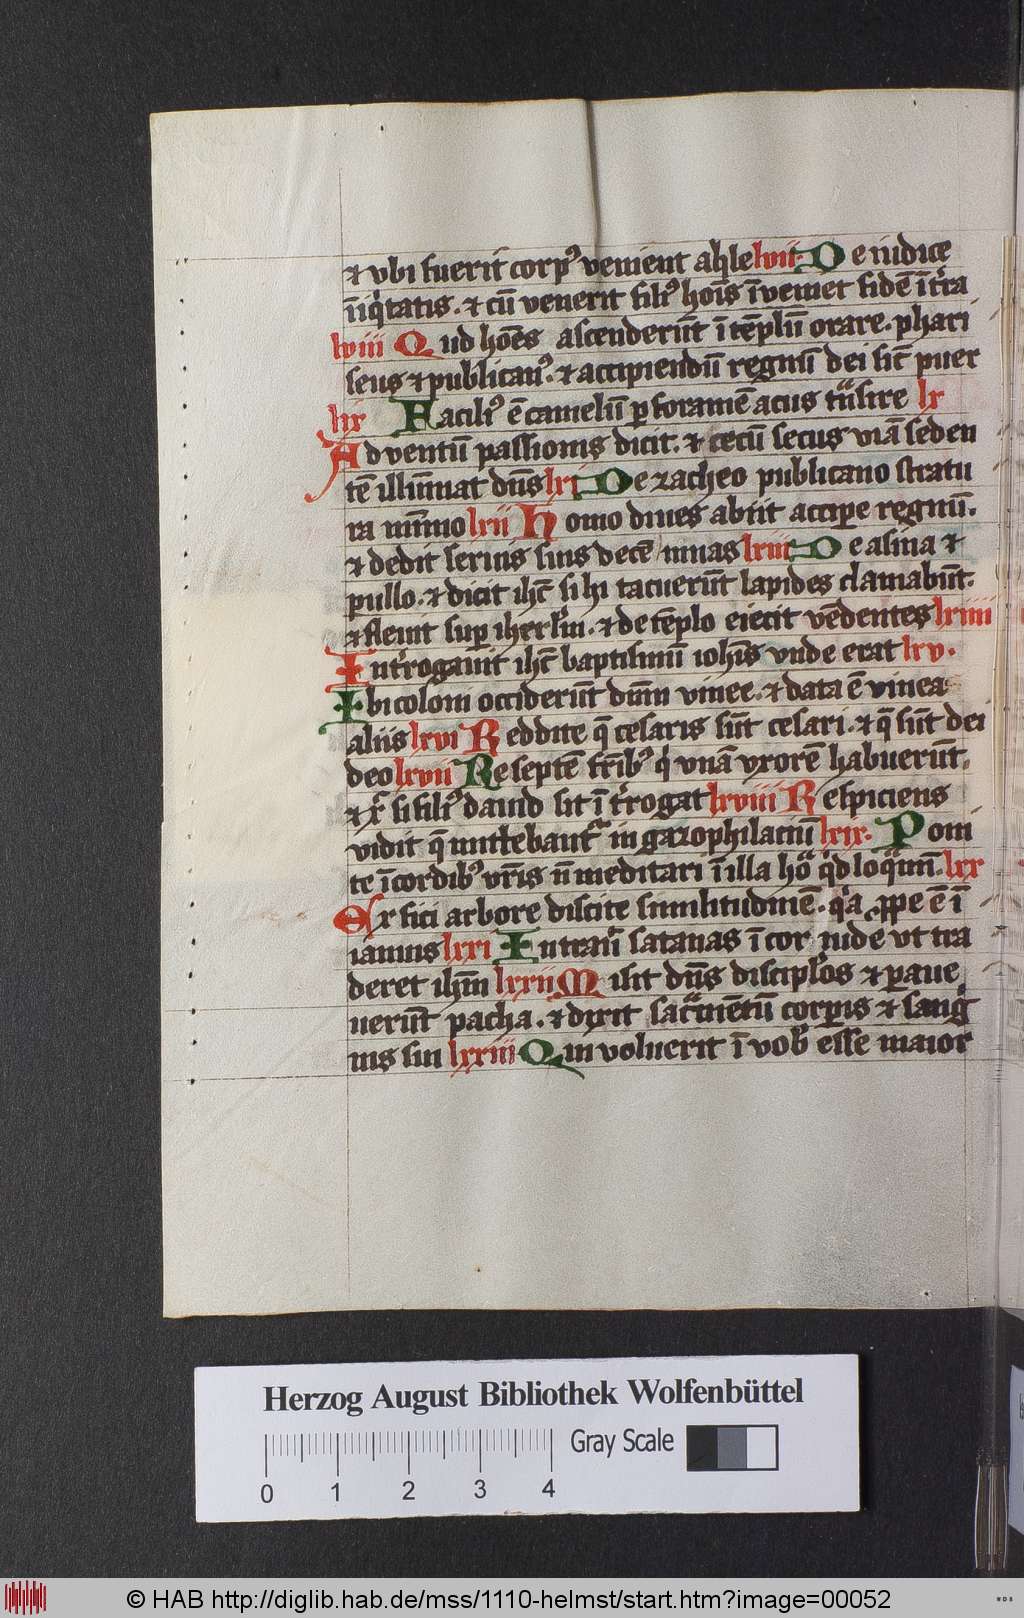 ⁊ vbi fuerit corpꝰ venient aq̄le lvii· De iudice
īiq̇tatis. ⁊ cū venerit filiꝰ hoı̄s īveniet fidē ī t̄ra
lviii Qud hoēs ascenderūt ī tēplū orare. phari
seus ⁊ publicanꝰ. ⁊ accipiendū regnū dei sic̄ puer
lix Faciliꝰ ē camelū p foramē acus tn̄sire lx
Ad ventū passionis dicit. ⁊ cecū secus viā seden
tē illūinat dn̄s lxi De zacheo publicano statu
ra mīmo lxii Homo diues abiit accipe regnū.
⁊ dedit seruis suis decē mnas lxiii De asina ⁊
pullo. ⁊ dicit ihc̄ si hi tacuerūt lapides clamabūt.
⁊ fleuit sup iherlm̄. ⁊ de tēplo eiecit vēdentes lxiiii
Int̄rogauit ihc̄ baptismū iohīs vnde erat lxv.
Ibi coloni occiderūt dn̄m vinee. ⁊ data ē vinea
aliis lxvi Reddite q̄ cesaris sūt cesari. ⁊ q̄ sūt dei
deo lxvii De septē fr̄ibꝰ q̇ vnā vxorē habuerūt.
⁊ xp̄c si filiꝰ dauid sit īt̄rogat lxviii Respiciens
vidit q̄ mittebant̄ in gazophilaciū lxix. Poni
te ī cordibꝰ vr̄is n̄ meditari ī illa hoᷓ q̇d loq̄mī. lxx
Ex fici arbore discite similitudinē. q̇a ꝓpe ē ī
ianuis lxxi Intrauī satanas ī cor iude vt tra
deret ihm̄ lxxii Misit dn̄s discipl̄os ⁊ paue
uerūt pacha. ⁊ dixit sac̄mētū corpis ⁊ sanġ
nis sui lxxiii Qui voluerit ī vob̄ esse maior
Herzog August Bibliothek Wolfenbüttel
Gray Scale
0 1 2 3 4
© HAB http://diglib.hab.de/mss/1110-helmst/start.htm?image=00052